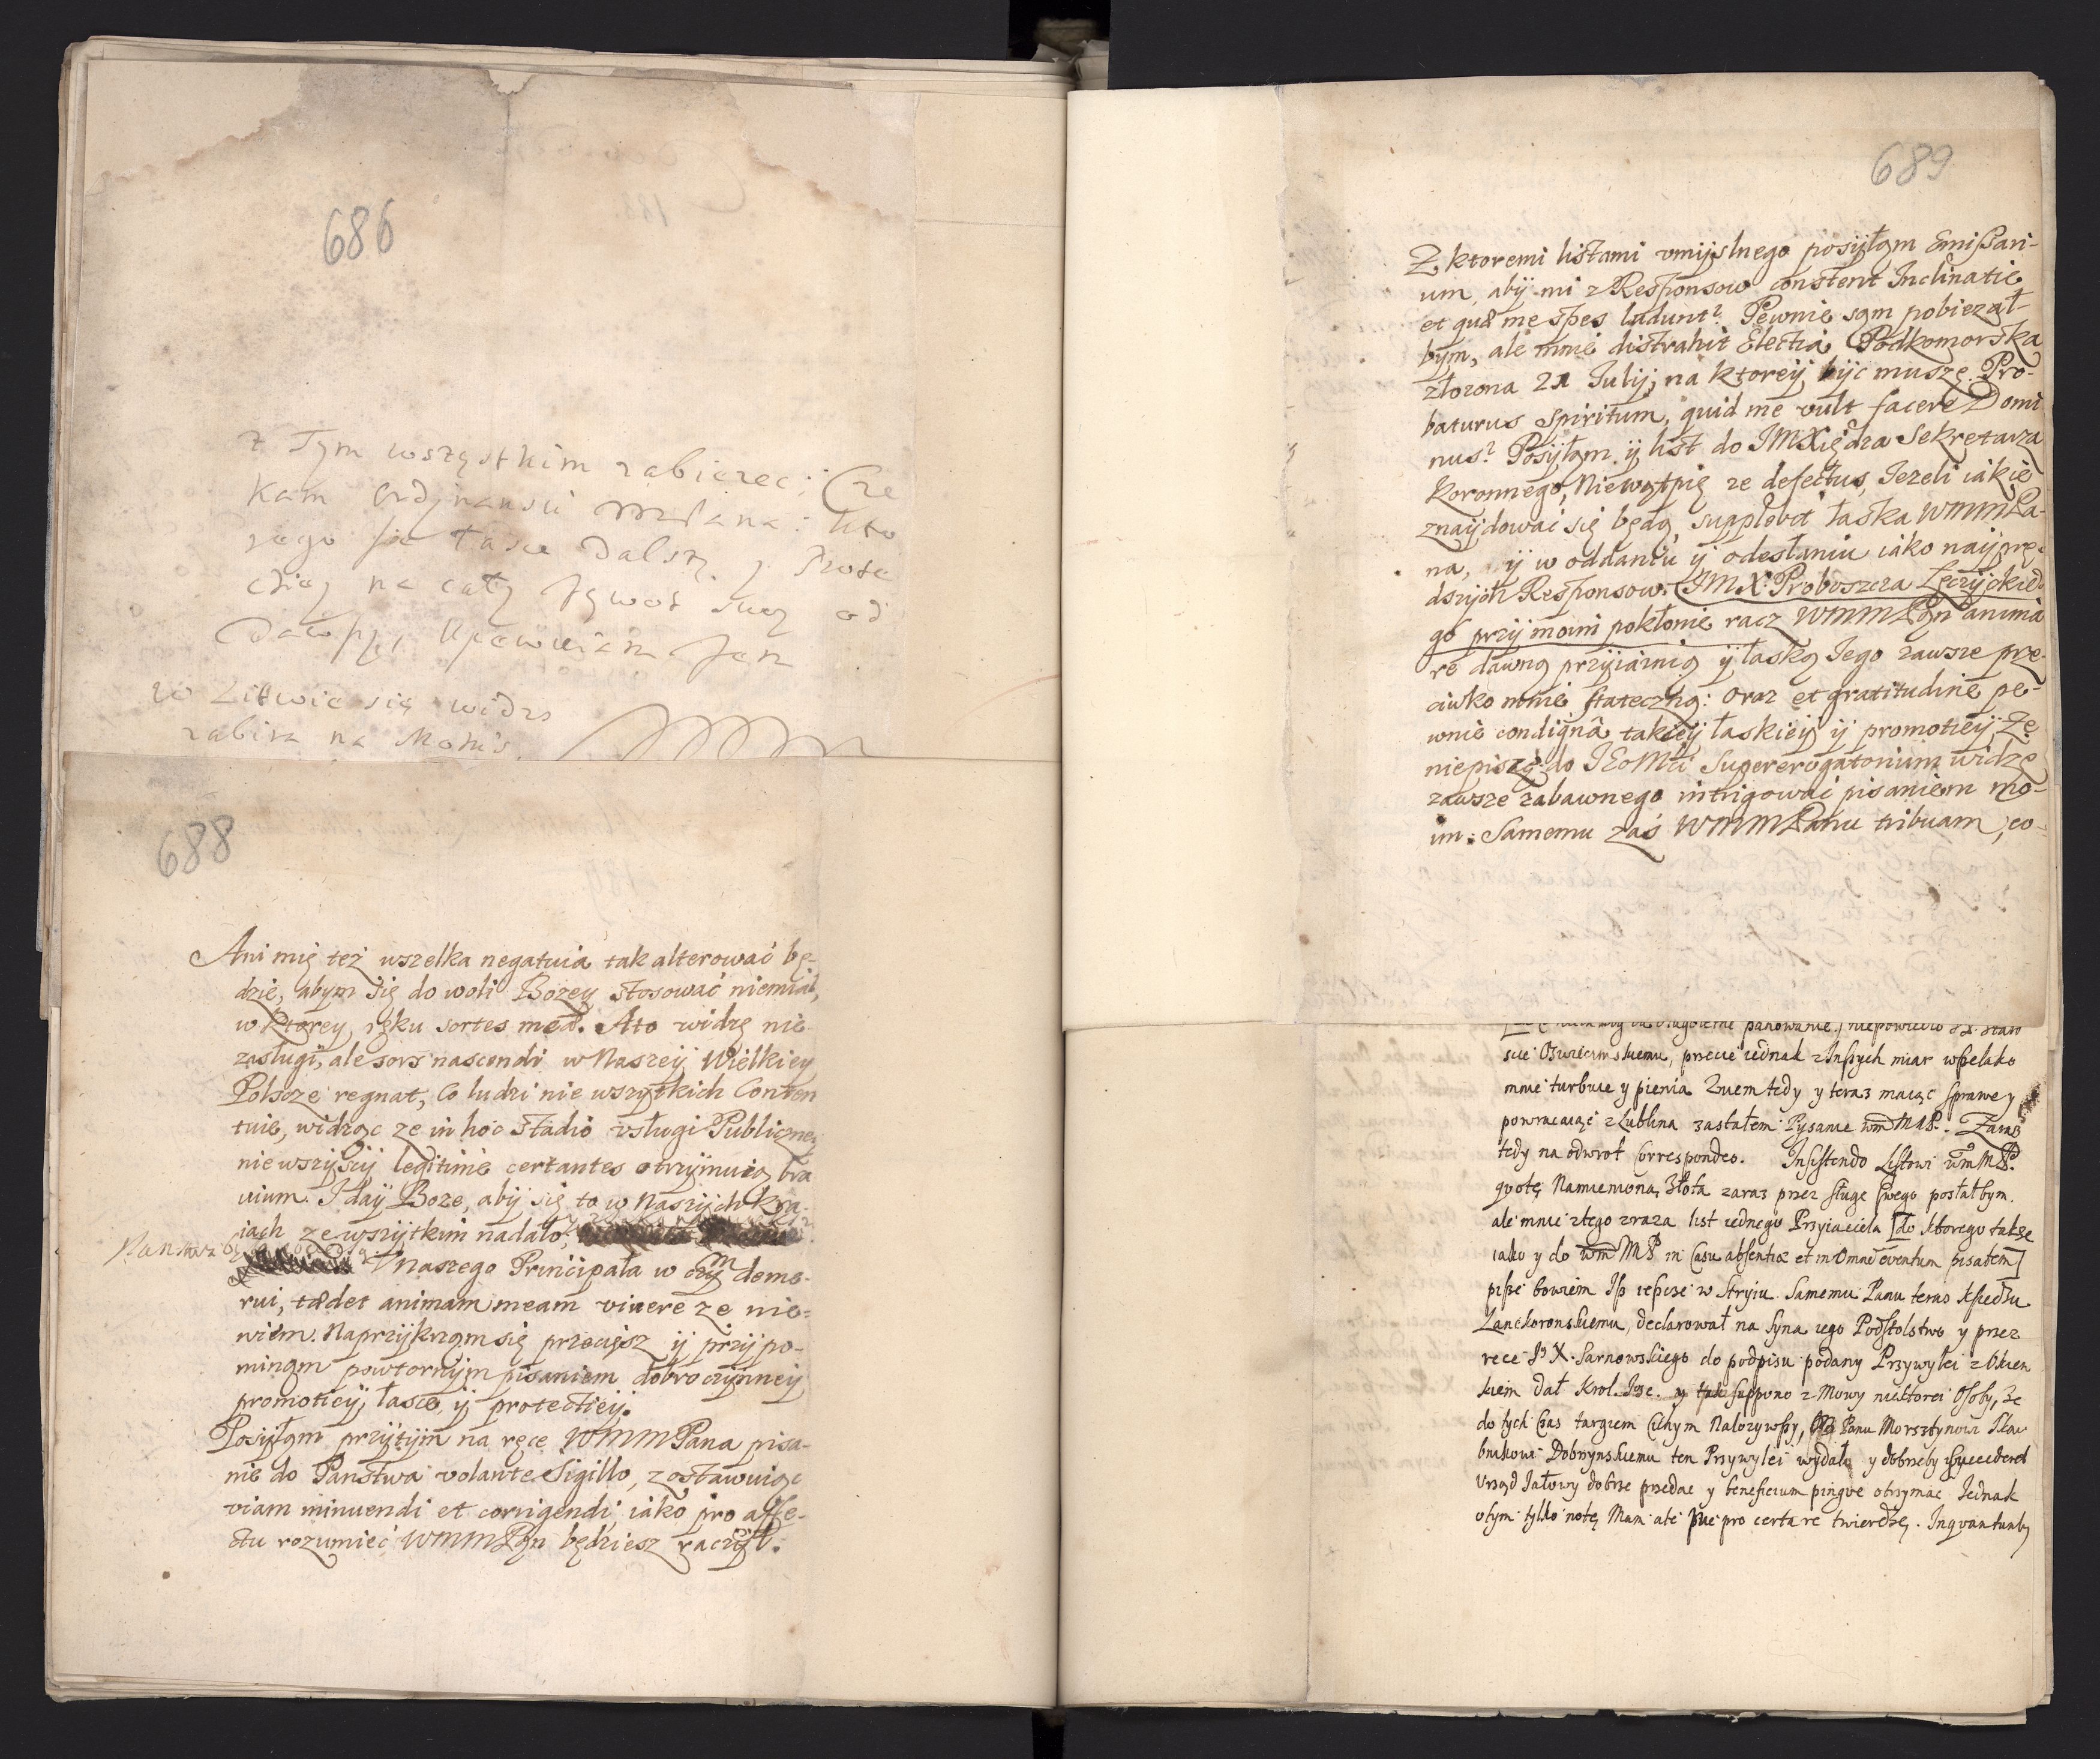 686
z Tym wszystkim zabierec: Cze
kam Ordynansu WMPana: kto
rego sie Łasce Dalszy y Prote
ctiey na cały żywot swoy od
Dawszy, upewniam Jem
w Litwie się widzs
zabira na
688
Ani mię też wszelka negatiuia tak alterować bę-
dzie, abym się do woli Bozey stosować niemiał,
w ktorey ręku sortes meæ. Ato widzę nie
zasługi, ale sors nascendi w Naszeÿ Wielkiey
Polszcze regnat, Co ludzi nie wszytkich Conten
tuie, widząc ze in hoc Stadio vsługi Publiczney
niewszÿscÿ legitimè certantes otrzÿmuią bra
uium. I daÿ Boze, abÿ się to w Naszÿch Kra-
iach ze wszÿtkim nadało,
V Naszego Principała w czym deme-
rui, tædet animam meam viuere ze nie-
wiem. Naprzÿkrzam się przecięsz ÿ przÿpo-
minam powtornÿm pisaniem dobroczÿnneÿ
promotieÿ, łasce, ÿ protectieÿ.
Posÿłam przÿtÿm na ręce WMMPana pisa-
nie do Państwa volante Sigillo, zostawuiąc
viam minuendi et corrigendi, iako pro affe-
ctu rozumieć WMMPan będziesz raczÿł.
689
Z ktoremi listami vmÿslnego posÿłam Emissari-
um, abÿ mi z Responsow constent Inclinatie
et quæ me spes ludunt? Pewnie sam pobiezał-
bÿm, ale mnie distrahit Electia Podkomorska
złozona 21 Julÿ, na ktoreÿ bÿc muszę. Pro-
baturus Spiritum, quid me vult facere Domi
nus? Posÿłam ÿ list do JMXiędza Sekretarza
Koronnego, Niewątpię ze defectus, Jezeli iakie
znaÿdować się będą, supplebit łaska WMMPa-
na, ÿ w oddaniu ÿ odesłaniu iako naÿprę-
dszÿch Responsow. JMX: Proboszcza Łęczÿckie-
go przÿ moim pokłonie racz WMMPan anima
re dawną przÿiaźnią ÿ łaską Jego zawsze prze-
ciwko mnie stateczną: oraz et gratitudine pe-
wnie condignâ takieÿ łaskieÿ ÿ promotieÿ. Ze
niepiszę do JEoMci Supererogatorium widzę
zawsze zabawnego intrigować pisaniem mo-
im: Samemu zaś WMMPanu tribuam, co-
panowanie. niepowiedło
scie Oswiecimskiemu, przecie iednak z Inszych miar wszelako
mnie turbuie y pienia Zuem tedy y teraz maiąc sprawę y
powracaiąc z Lublina zastałem Pysanie WmMMP. Zaraz
tedy na odwrot Correspondeo. Insistendo Listowi WmMP.
qvotę Namieniona, Złota zaraz przez sługę swego posłałbym.
ale mnie ztego zraza list iednego Przyiaciela [do ktorego także
iako y do Wm MP in Casu absentiæ et in Omnē eventum pisałem]
pisze bowiem Isz iescze w Stryiu Samemu Panu teras Xsiedzu
Lanckoronskiemu, declarował na syna iego Podstolstwo y przez
rece JX. Sarnowskiego do podpisu podany Przywylei z Okien
kiem dał Krol. Jmc. y tak suppono z Mowy niektorei Osoby, że
do tych Czas targiem Cichym Nalozywszy, Panu Morsztynowi
Dobrzynskiemu ten Przywylei wydała y dobrzeby succederet
Vrząd Jałowy dobrze przedac y beneficium pingve otrzymac Jednak
otym tylko notę Mam ale nie pro certa re twierdzę. Inqvantumby